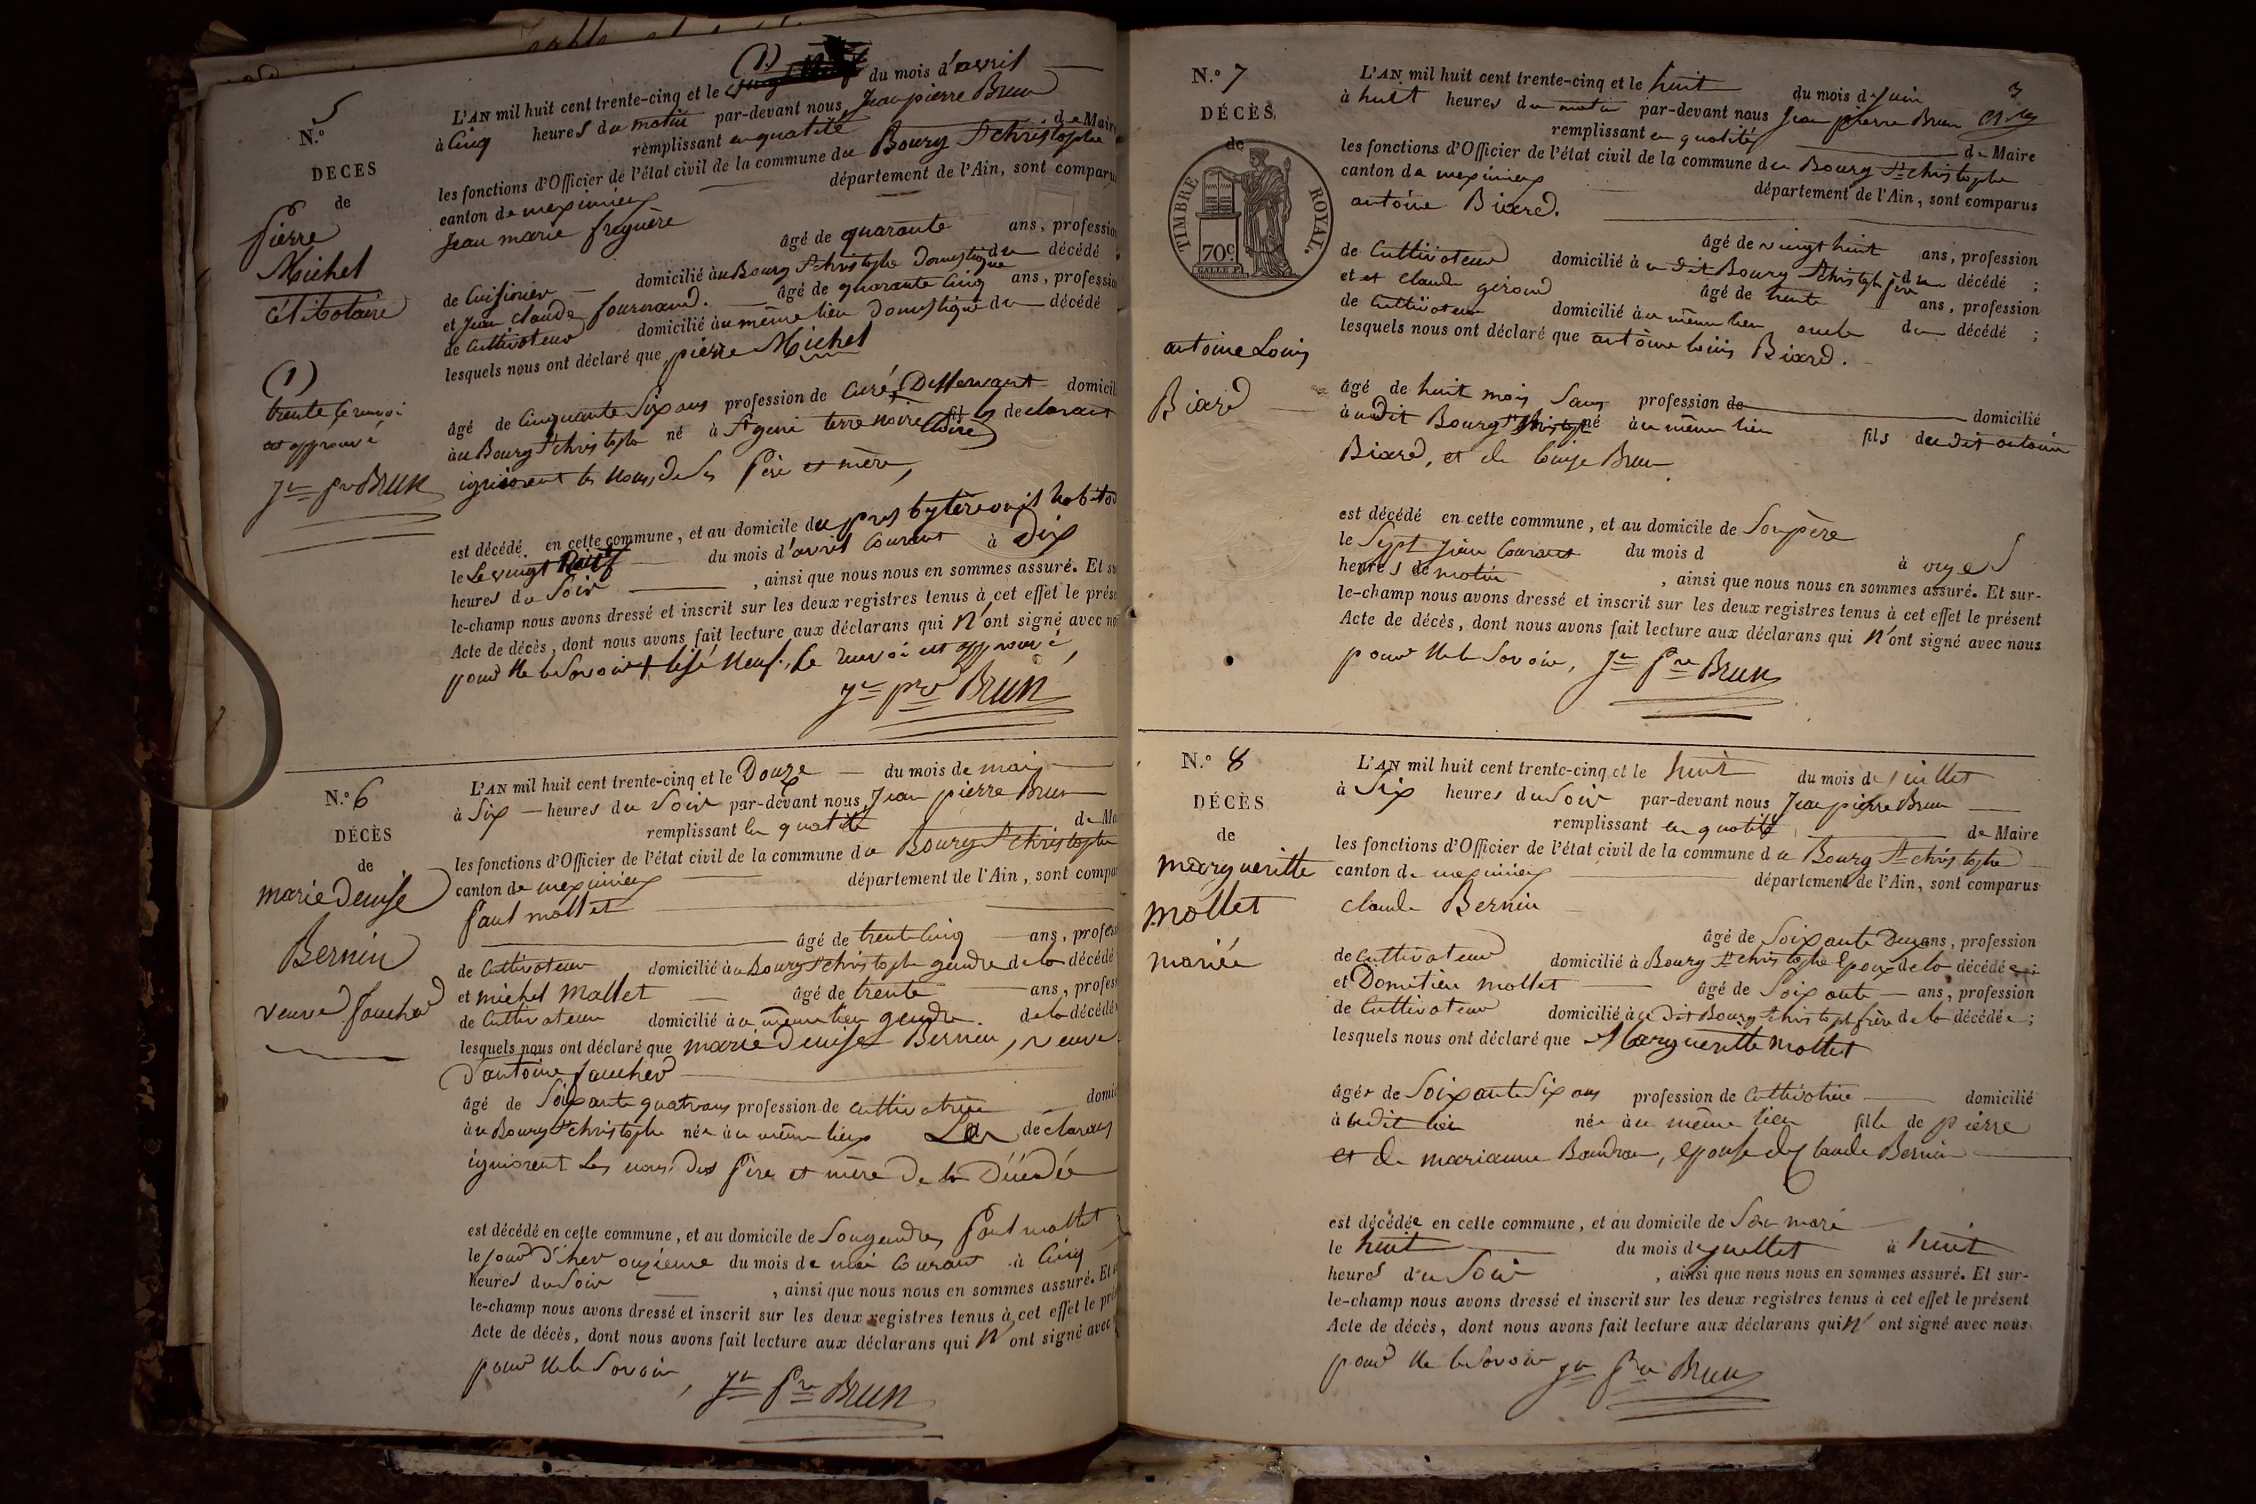 N.º 5
DECES
de
Pierre
Michel
Célibataire
(1)
trente Ce renvoi
est approuvé
Jn Pre BRUN
(1)
L'AN mil huit cent trente-cinq et le du mois d'avril
à Cinq heures du matin par-devant nous Jean pierre Brun
remplissant en qualité de Maire
les fonctions d'Officier de l'état civil de la commune du Bourg St christophe
canton de meximieux département de l'Ain, sont comparu
Jean marie
âgé de quarante ans, profession
de Cuisinier domicilié au Bourg St christophe Domestique du décédé
et Jean Claude fournand. âgé de quarante Cinq ans, profession
de Cultivateur domicilié au même lieu Domestique du décédé
lesquels nous ont déclaré que pierre Michel
âgé de Cinquante Six ans profession de Curé Desservant domicil
au Bourg St christophe né à St geni terre noire (Loire) les declarant
ignorent les noms de Ses Père et mère,
est décédé en cette commune, et au domicile du presbytère ou il habitoit
le Le vingt du mois d'avril Courant à Dix
heures du Soir, ainsi que nous nous en sommes assuré. Et su
le-champ nous avons dressé et inscrit sur les deux registres tenus à cet effet le prése
Acte de décès, dont nous avons fait lecture aux déclarans qui n'ont signé avec no
pour Ne le Savoir neuf, Le renvoi est approuvé,
Jn pre BRUN
N.º 6
DÉCÈS
de
marie Denise
Bernin
veuve faucher
L'AN mil huit cent trente-cinq et le Douze du mois de mai
à Six heures du Soir par-devant nous Jean pierre Brun
remplissant En qualité de Ma
les fonctions d'Officier de l'état civil de la commune du Bourg St christophe
canton de meximieux département de l'Ain, sont compa
Paul mollet
âgé de trente Cinq ans, profess
de Cultivateur domicilié au Bourg St christophe gendre de la décédé
et michel Mallet âgé de trente ans, profess
de Cultivateur domicilié au même lieu gendre de la décédé
lesquels nous ont déclaré que marie Denise Bernin, veuve
d'antoine faucher
âgé de Soixante quatre ans profession de Cultivatrice domic
au Bourg St christophe née au même lieu Les declarans
ignorent Les noms des Père et mère De la Décédée
est décédé en cette commune, et au domicile de Son gendre Paul mollet
le jour d'hier onzieme du mois de mai Courant à Cinq
heures du Soir, ainsi que nous nous en sommes assuré. Et
le-champ nous avons dressé et inscrit sur les deux registres tenus à cet effet le pré
Acte de décès, dont nous avons fait lecture aux déclarans qui n'ont signé avec
pour Ne le Savoir, Jn Pre BRUN
N.º 7
DÉCÈS
de
TIMBRE ROYAL.
70c.
antoine Louis
Biard
L'AN mil huit cent trente-cinq et le huit du mois de Juin
3
à huit heures du matin par-devant nous Jean pierre Brun
remplissant en qualité de Maire
les fonctions d'Officier de l'état civil de la commune du Bourg St christophe
canton de meximieux département de l'Ain, sont comparus
antoine Biard.
âgé de vingt huit ans, profession
de Cultivateur domicilié à u dit Bourg St christophe père du décédé ;
et et Claude giroud âgé de trente ans, profession
de Cultivateur domicilié au même lieu oncle du décédé ;
lesquels nous ont déclaré que antoine louis Biard.
âgé de huit mois Sans profession de domicilié
à udit Bourg St christophe né au même lieu fils du dit antoine
Biard, et de louise Brun
est décédé en cette commune, et au domicile de Son père
le Sept Juin Courant du mois d à onze
heures de matin, ainsi que nous nous en sommes assuré. Et sur-
le-champ nous avons dressé et inscrit sur les deux registres tenus à cet effet le présent
Acte de décès, dont nous avons fait lecture aux déclarans qui n'ont signé avec nous
pour Ne le Savoir, Jn Pre BRUN
N.º 8
DÉCÈS
de
margueritte
Mollet
mariée
L'AN mil huit cent trente-cinq et le huit du mois de juillet
à Six heures du Soir par-devant nous Jean pierre Brun
remplissant en qualité de Maire
les fonctions d'Officier de l'état civil de la commune du Bourg St christophe
canton de meximieux département de l'Ain, sont comparus
claude Bernin
âgé de Soixante Deux ans, profession
de Cultivateur domicilié à Bourg St christophe Epoux de la décédée
et Domitien mollet âgé de Soixante ans, profession
de Cultivateur domicilié au Dit Bourg St christophe frère de la décédée ;
lesquels nous ont déclaré que Margueritte Mollet
âgée de Soixante Six ans profession de Cultivatrice domicilié
à udit lieu née au même lieu fille de pierre
et de marianne Baudran, Epouse de Claude Bernin
est décédée en cette commune, et au domicile de Son mari
le huit du mois de juillet à huit
heures du Soir, ainsi que nous nous en sommes assuré. Et sur-
le-champ nous avons dressé et inscrit sur les deux registres tenus à cet effet le présent
Acte de décès, dont nous avons fait lecture aux déclarans qui n'ont signé avec nous
pour Ne le Savoir Jn Pre BRUN